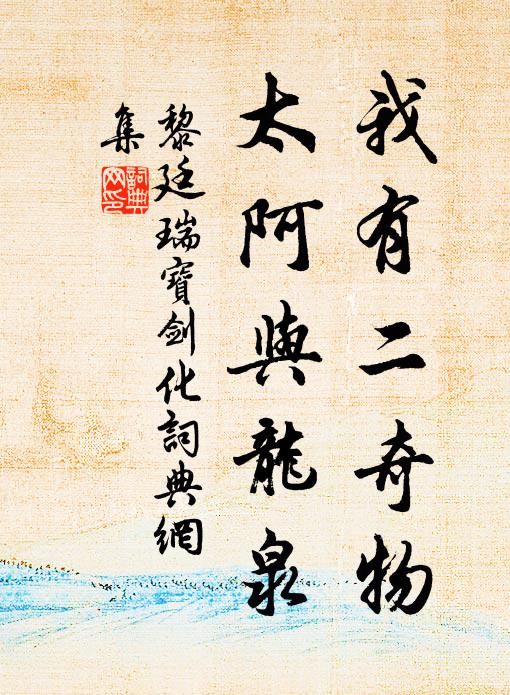 我有二奇物
太阿與龍泉
黎廷瑞寶劍化詞典網
集
詞典
网印